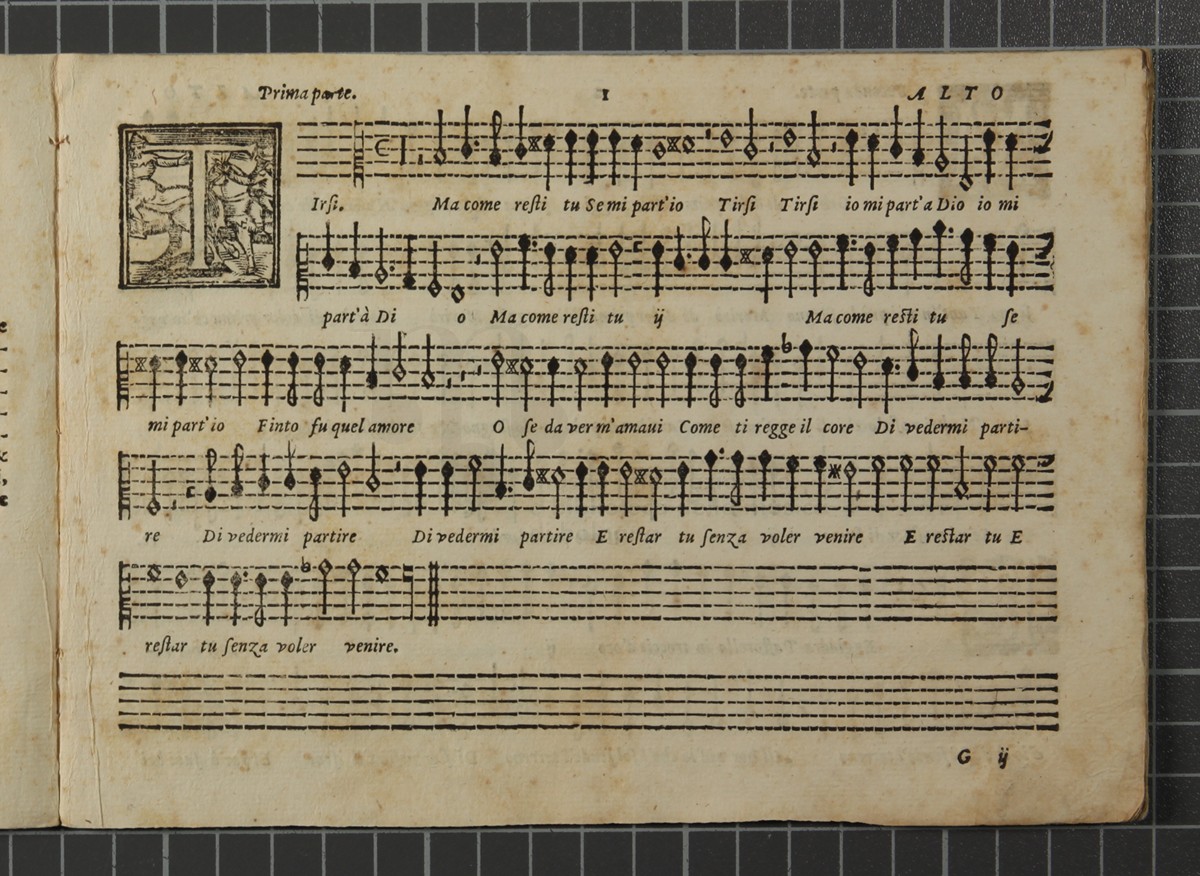 Prima parte. 1 ALTO
T Irsi. Ma come resti tu Se mi part'io Tirsi Tirsi io mi part'a Dio io mi
part'à Di o Ma come resti tu ij Ma come resti tu se
mi part'io Finto fu quel amore O se da ver m'amaui Come ti regge il core Di vedermi parti-
re Di vedermi partire Di vedermi partire E restar tu senza voler venire E restar tu E
restar tu senza voler venire.
G ij